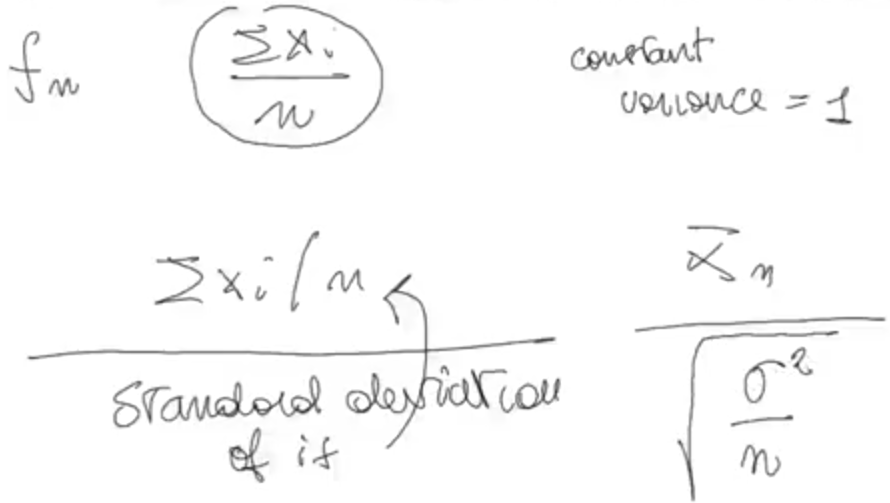 fn
Σxi
n
constant
variance = 1
Σxi/n
standard deviation
of it
X̄n
√(σ²/n)